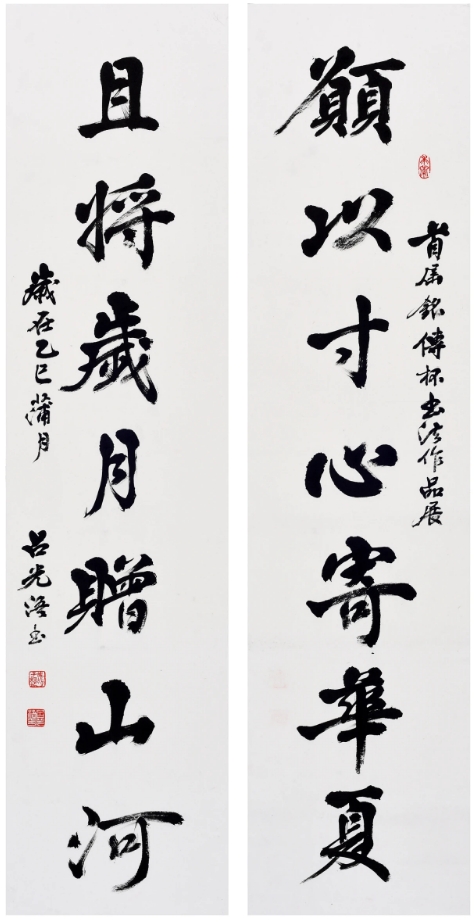 首届銘傳杯书法作品展
願以寸心寄華夏
且將歲月贈山河
歲在乙巳蒲月
呂光浯书